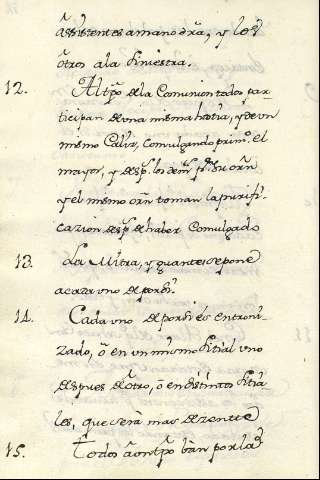 âsistentes a mano dra, y los
ôtros a la siniestra.
12. Al tpo de la Comunion todos par-
ticipan de una misma hostia, y de un
mismo Caliz, comulgando primo. el
mayor, y desp. los demas pr su orn
y el mismo orn toman la purifi-
cazion desp. de haber Comulgado
13. La Mitra, y guantes se pone
a cada uno de por si
14. Cada uno de por si és entroni-
zado, ô en un mismo sitial uno
despues de ôtro, ô en distintos sitia-
les, que será mas dezente
15. Todos âon tpo bàn por la